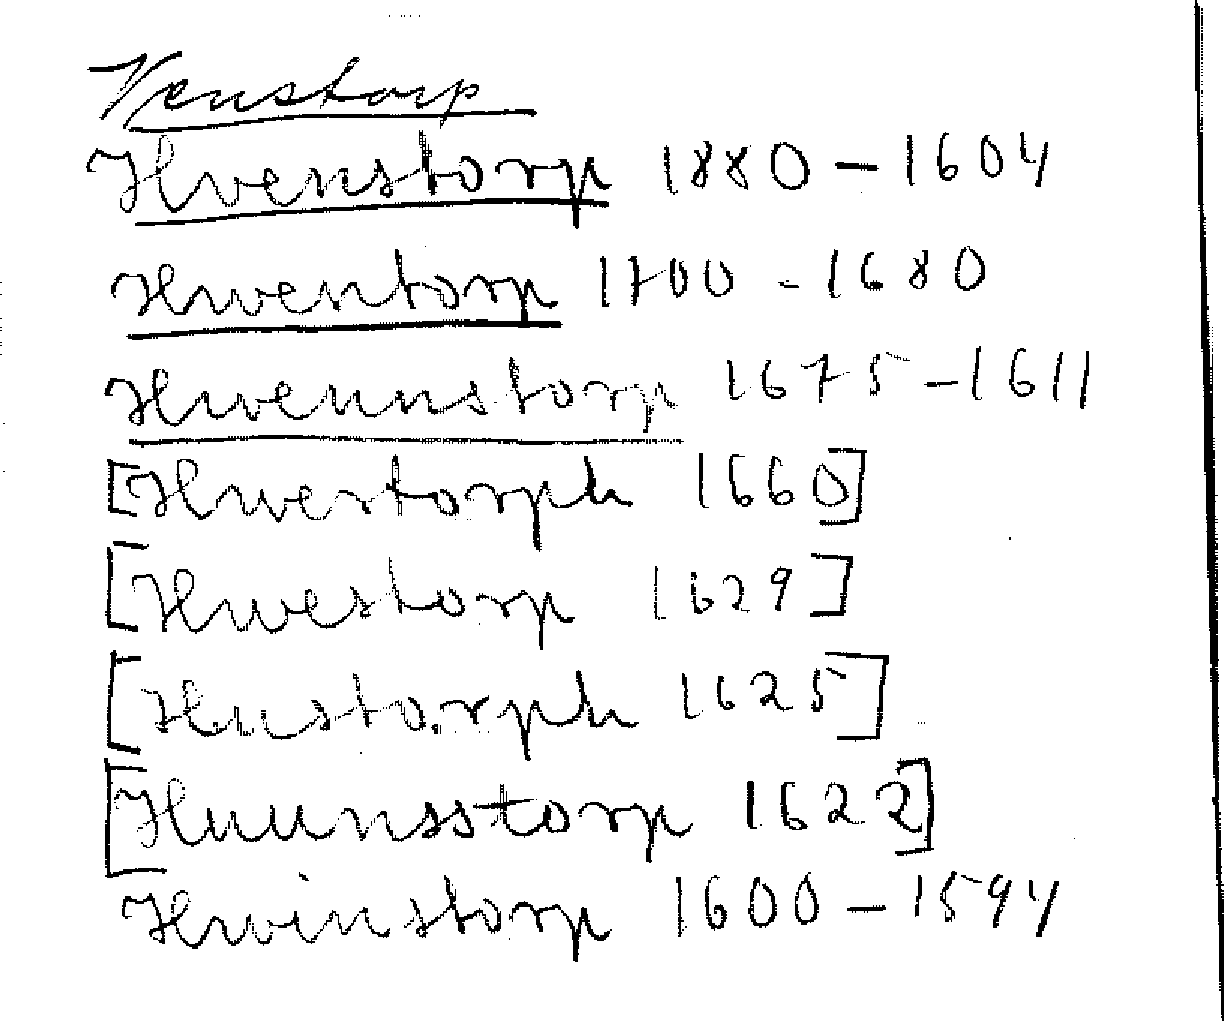 Venstorp
Hvenstorp 1880 - 1604
Hwentorp 1700 - 1680
Hwennstorp 1675 - 1611
[Hwestorph 1660]
[Hwestorp 1629]
[Hustorph 1625]
[Huunsstorp 1622]
Hwinstorp 1600 - 1594